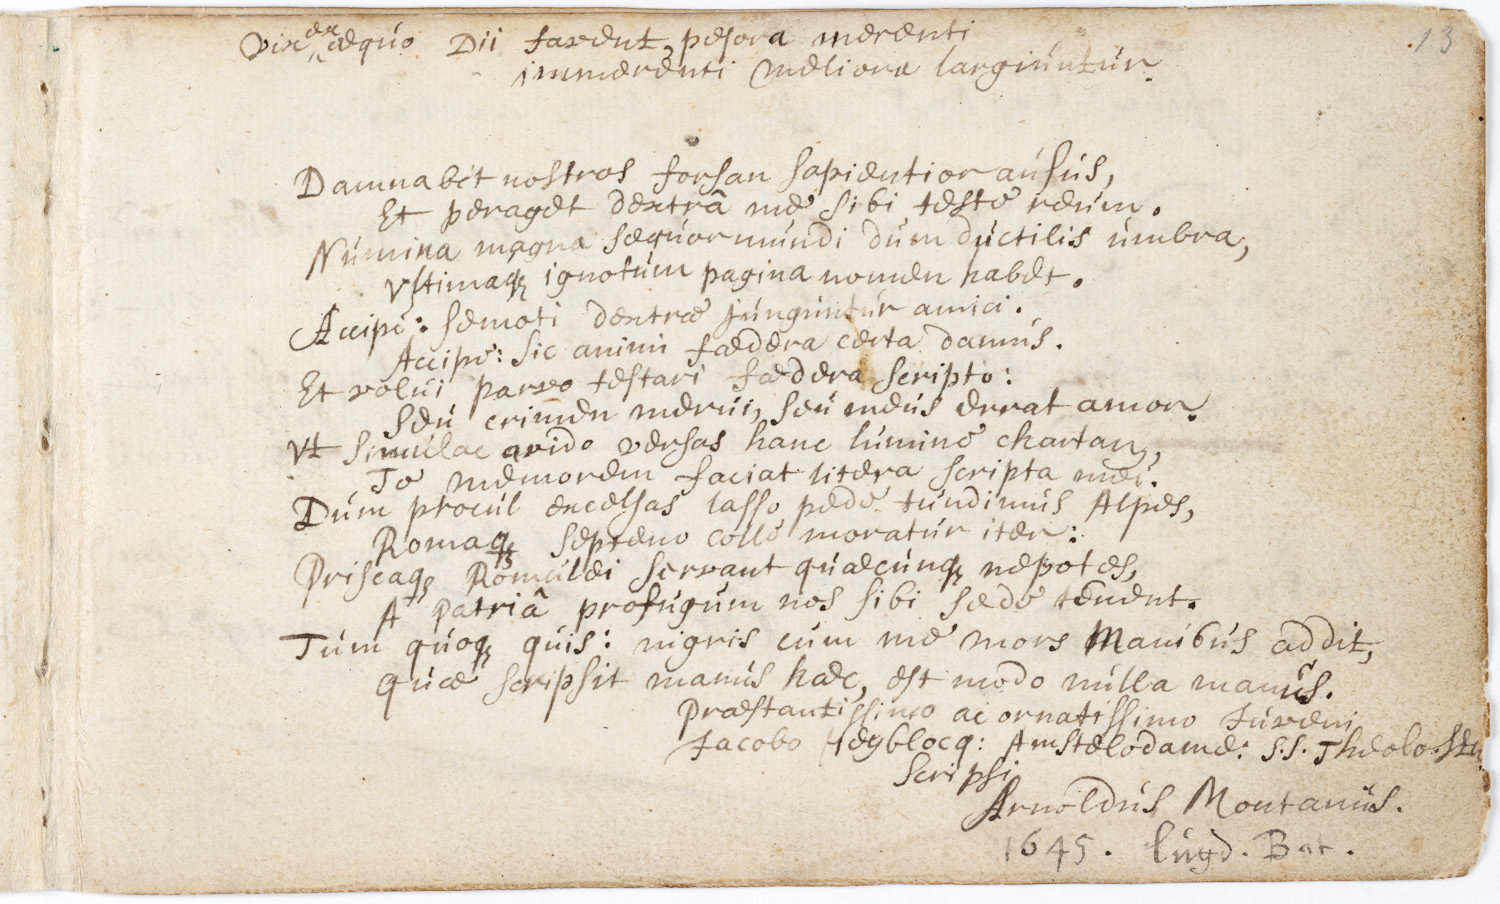 13
Vix ex æquo Dii favent, pejora merenti
immerenti meliora largiuntur.
Damnabit nostros forsan sapientior ausus,
Et peraget dextrâ me sibi teste reum.
Numina magna sequor mundi dum ductilis umbra,
Ultimaq; ignotum pagina nomen habet.
Accipe: semoti dextræ junguntur amici.
Accipe: sic animi fædera certa damus.
Et volui parvo testari fædera scripto:
Seu crimen merui, seu meus errat amor.
Vt simulac avido versas hanc lumine chartam,
Te memorem faciat litera scripta mei.
Dum procul excelsas lasso pede tundimus Alpes,
Romaq; septeno colle moratur iter:
Priscaq; Romulei servant quæcunq; nepotes,
A Patriâ profugum nos sibi sede tenent.
Tum quoq; quis: nigris cum me mors Manibus addit,
Quæ scripsit manus hæc, est modo nulla manus.
Præstantissimo ac ornatissimo Juveni
Jacobo Heyblocq: Amstelodame: S.S. Theolo. Stu
scripsi
Arnoldus Montanus.
1645. Lugd. Bat.